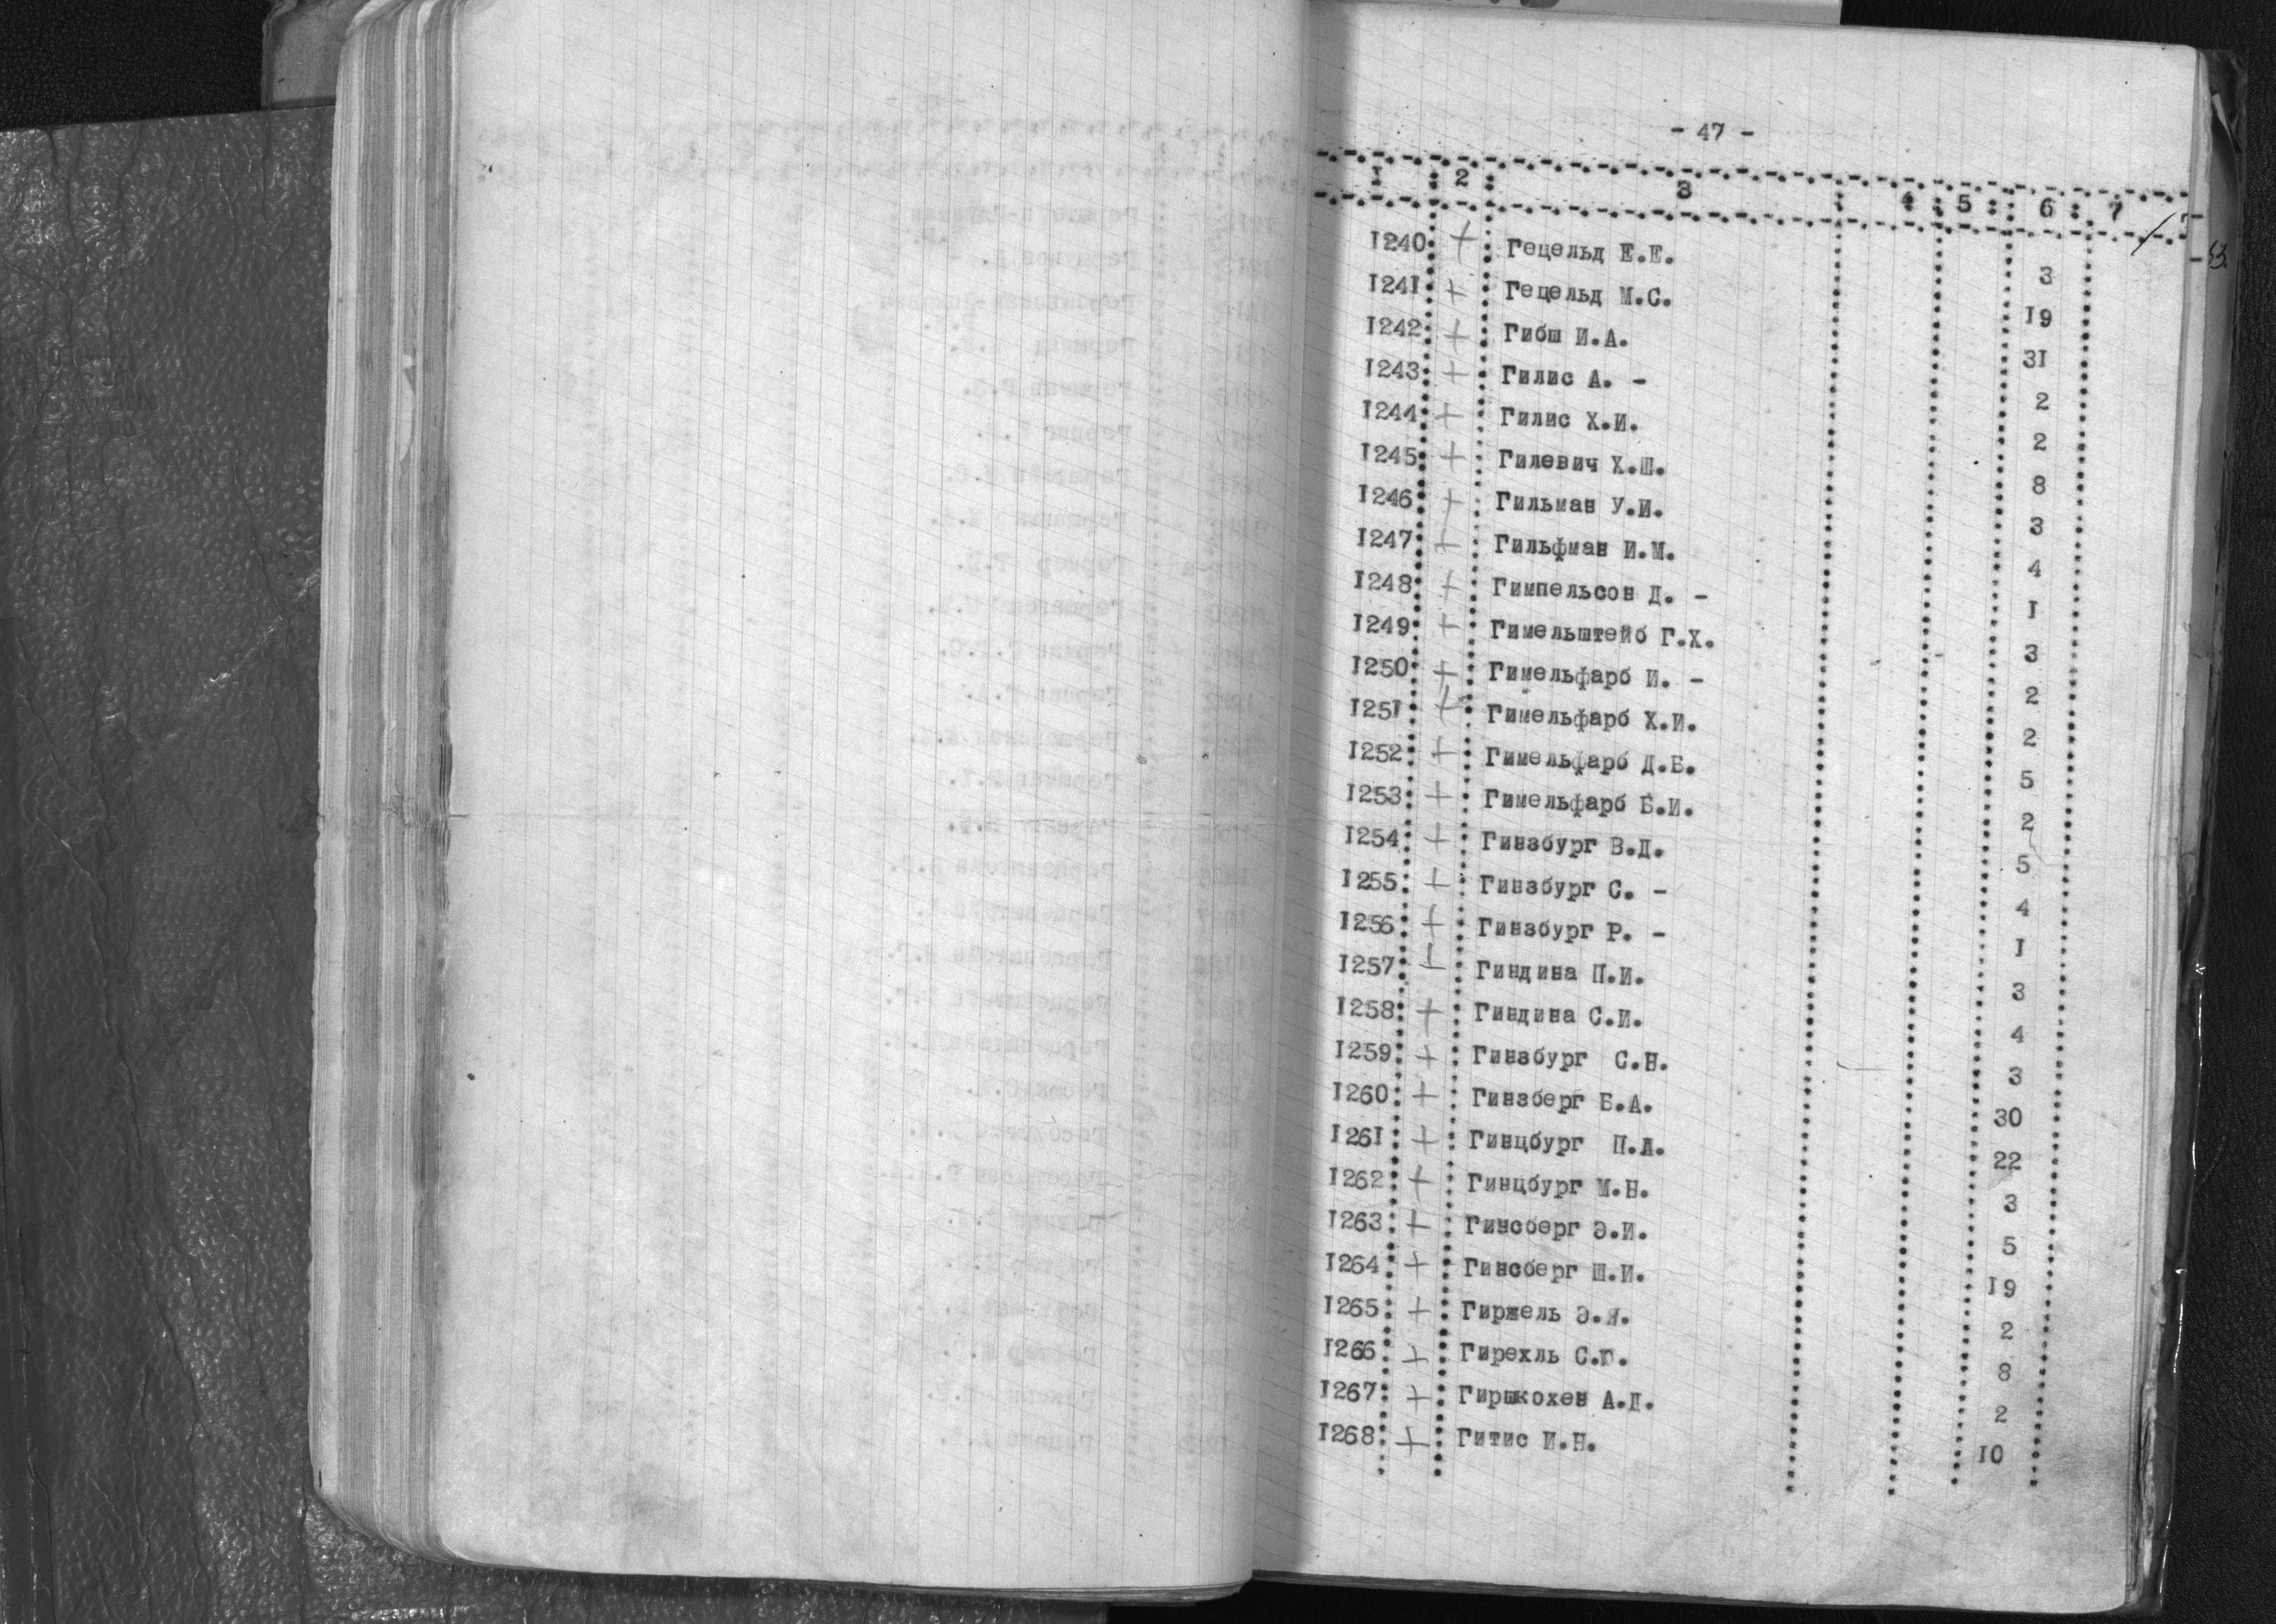 - 47 -
I 2 3 4 5 6 7
I240 + Гецельд Е.Е. 3
I24I + Гецельд М.С. I9
I242 + Гибш И.А. 3I
I243 + Гилис А. - 2
I244 + Гилис Х.И. 2
I245 + Гилевич Х.Ш. 8
I246 + Гильман У.И. 3
I247 + Гильфман И.М. 4
I248 + Гимпельсон Д. - I
I249 + Гимельштейб Г.Х. 3
I250 + Гимельфарб И. - 2
I25I + Гимельфарб Х.И. 2
I252 + Гимельфарб Д.Б. 5
I253 + Гимельфарб Б.И. 2
I254 + Гинзбург В.Д. 5
I255 + Гинзбург С. - 4
I256 + Гинзбург Р. - I
I257 + Гиндина П.И. 3
I258 + Гиндина С.И. 4
I259 + Гинзбург С.Н. 3
I260 + Гинзберг Б.А. 30
I26I + Гинцбург П.А. 22
I262 + Гинцбург М.Н. 3
I263 + Гинсберг Э.И. 5
I264 + Гинсберг Ш.И. I9
I265 + Гиржель Э.Я. 2
I266 + Гирехль С.Ю. 8
I267 + Гиршкохен А.Д. 2
I268 + Гитис И.Н. I0